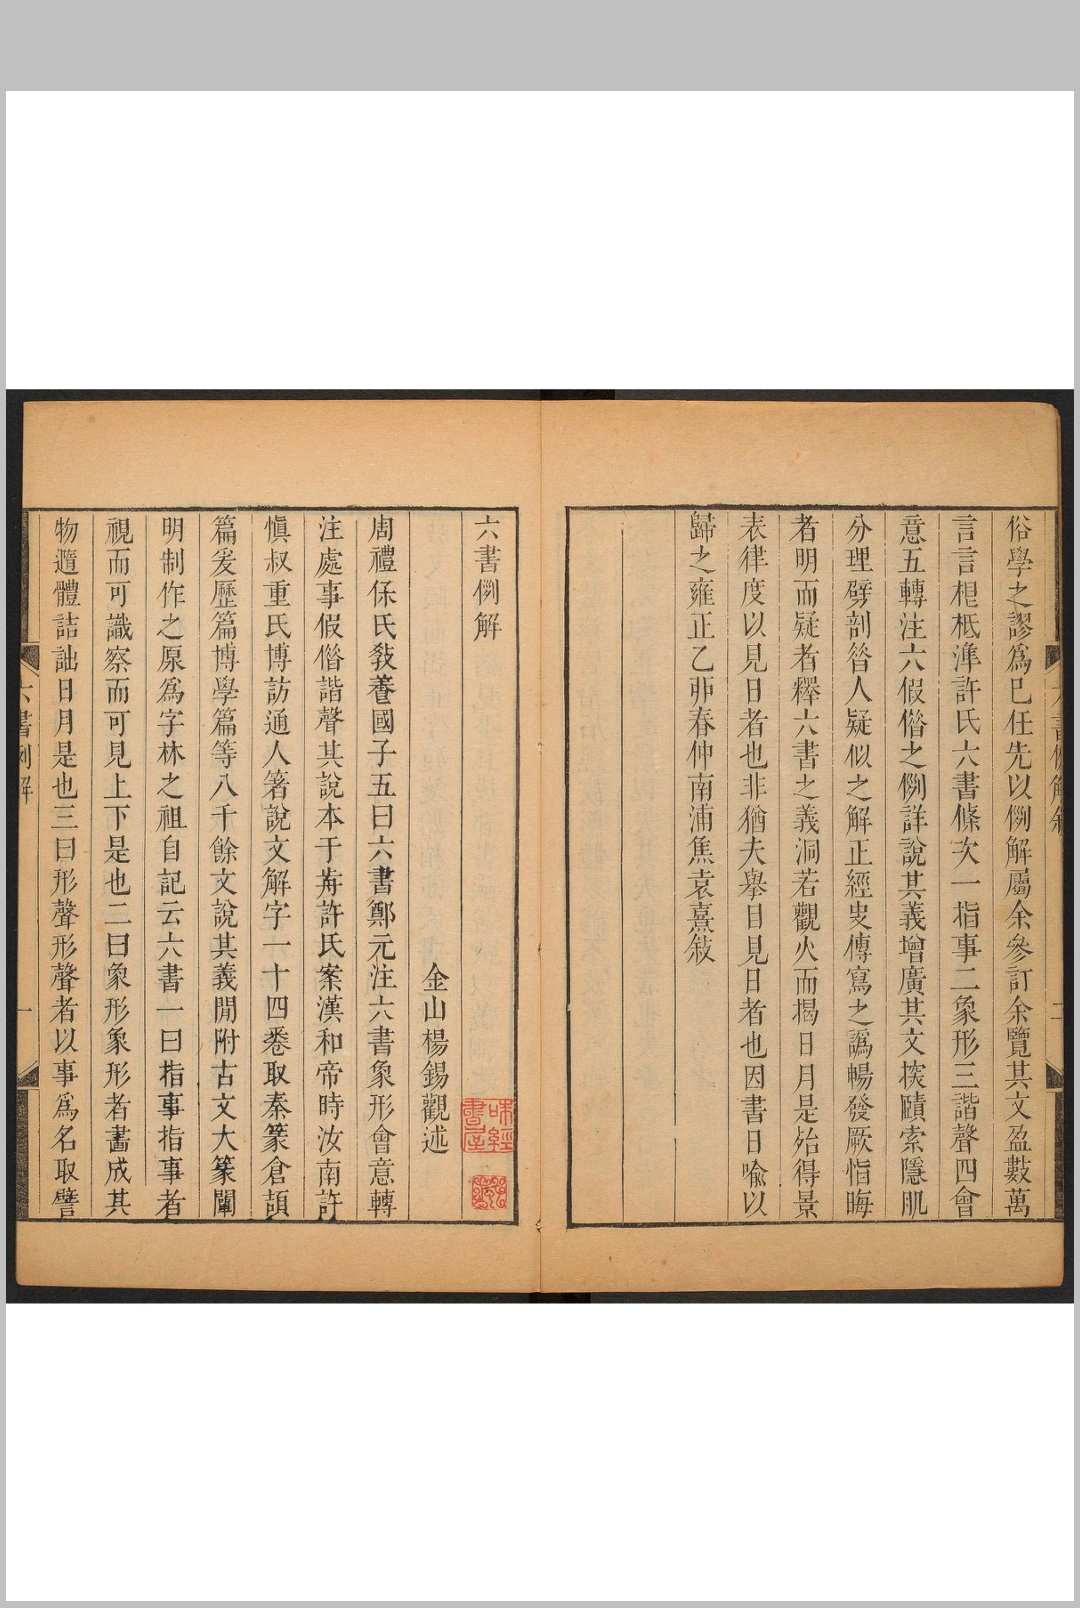 俗學之謬爲巳任先以例解屬余參訂余覽其文盈數萬
言言棍柢準許氏六書條次一指事二象形三諧聲四會
意五轉注六假借之例詳說其義增廣其文探賾索隱肌
分理劈剖昝人疑似之解正經史傳寫之譌暢發厥恉晦
者明而疑者釋六書之義洞若觀火而揭日月是殆得景
表律度以見日者也非猶夫舉日見日者也因書日喩以
歸之雍正乙丣春仲南浦焦袁熹敍
六書例解
金山楊錫觀述
周禮保氏敎養國子五曰六書鄭元注六書象形會意轉
注處事假借諧聲其說本于許氏案漢和帝時汝南許
愼叔重氏博訪通人箸說文解字一十四卷取秦篆倉頡
篇爰歷篇博學篇等八千餘文說其義閒附古文大篆闡
明制作之原爲字林之祖自記云六書一曰指事指事者
視而可識察而可見上下是也二曰象形象形者畵成其
物隨體詰詘日月是也三曰形聲形聲者以事爲名取譬
六書例解
一